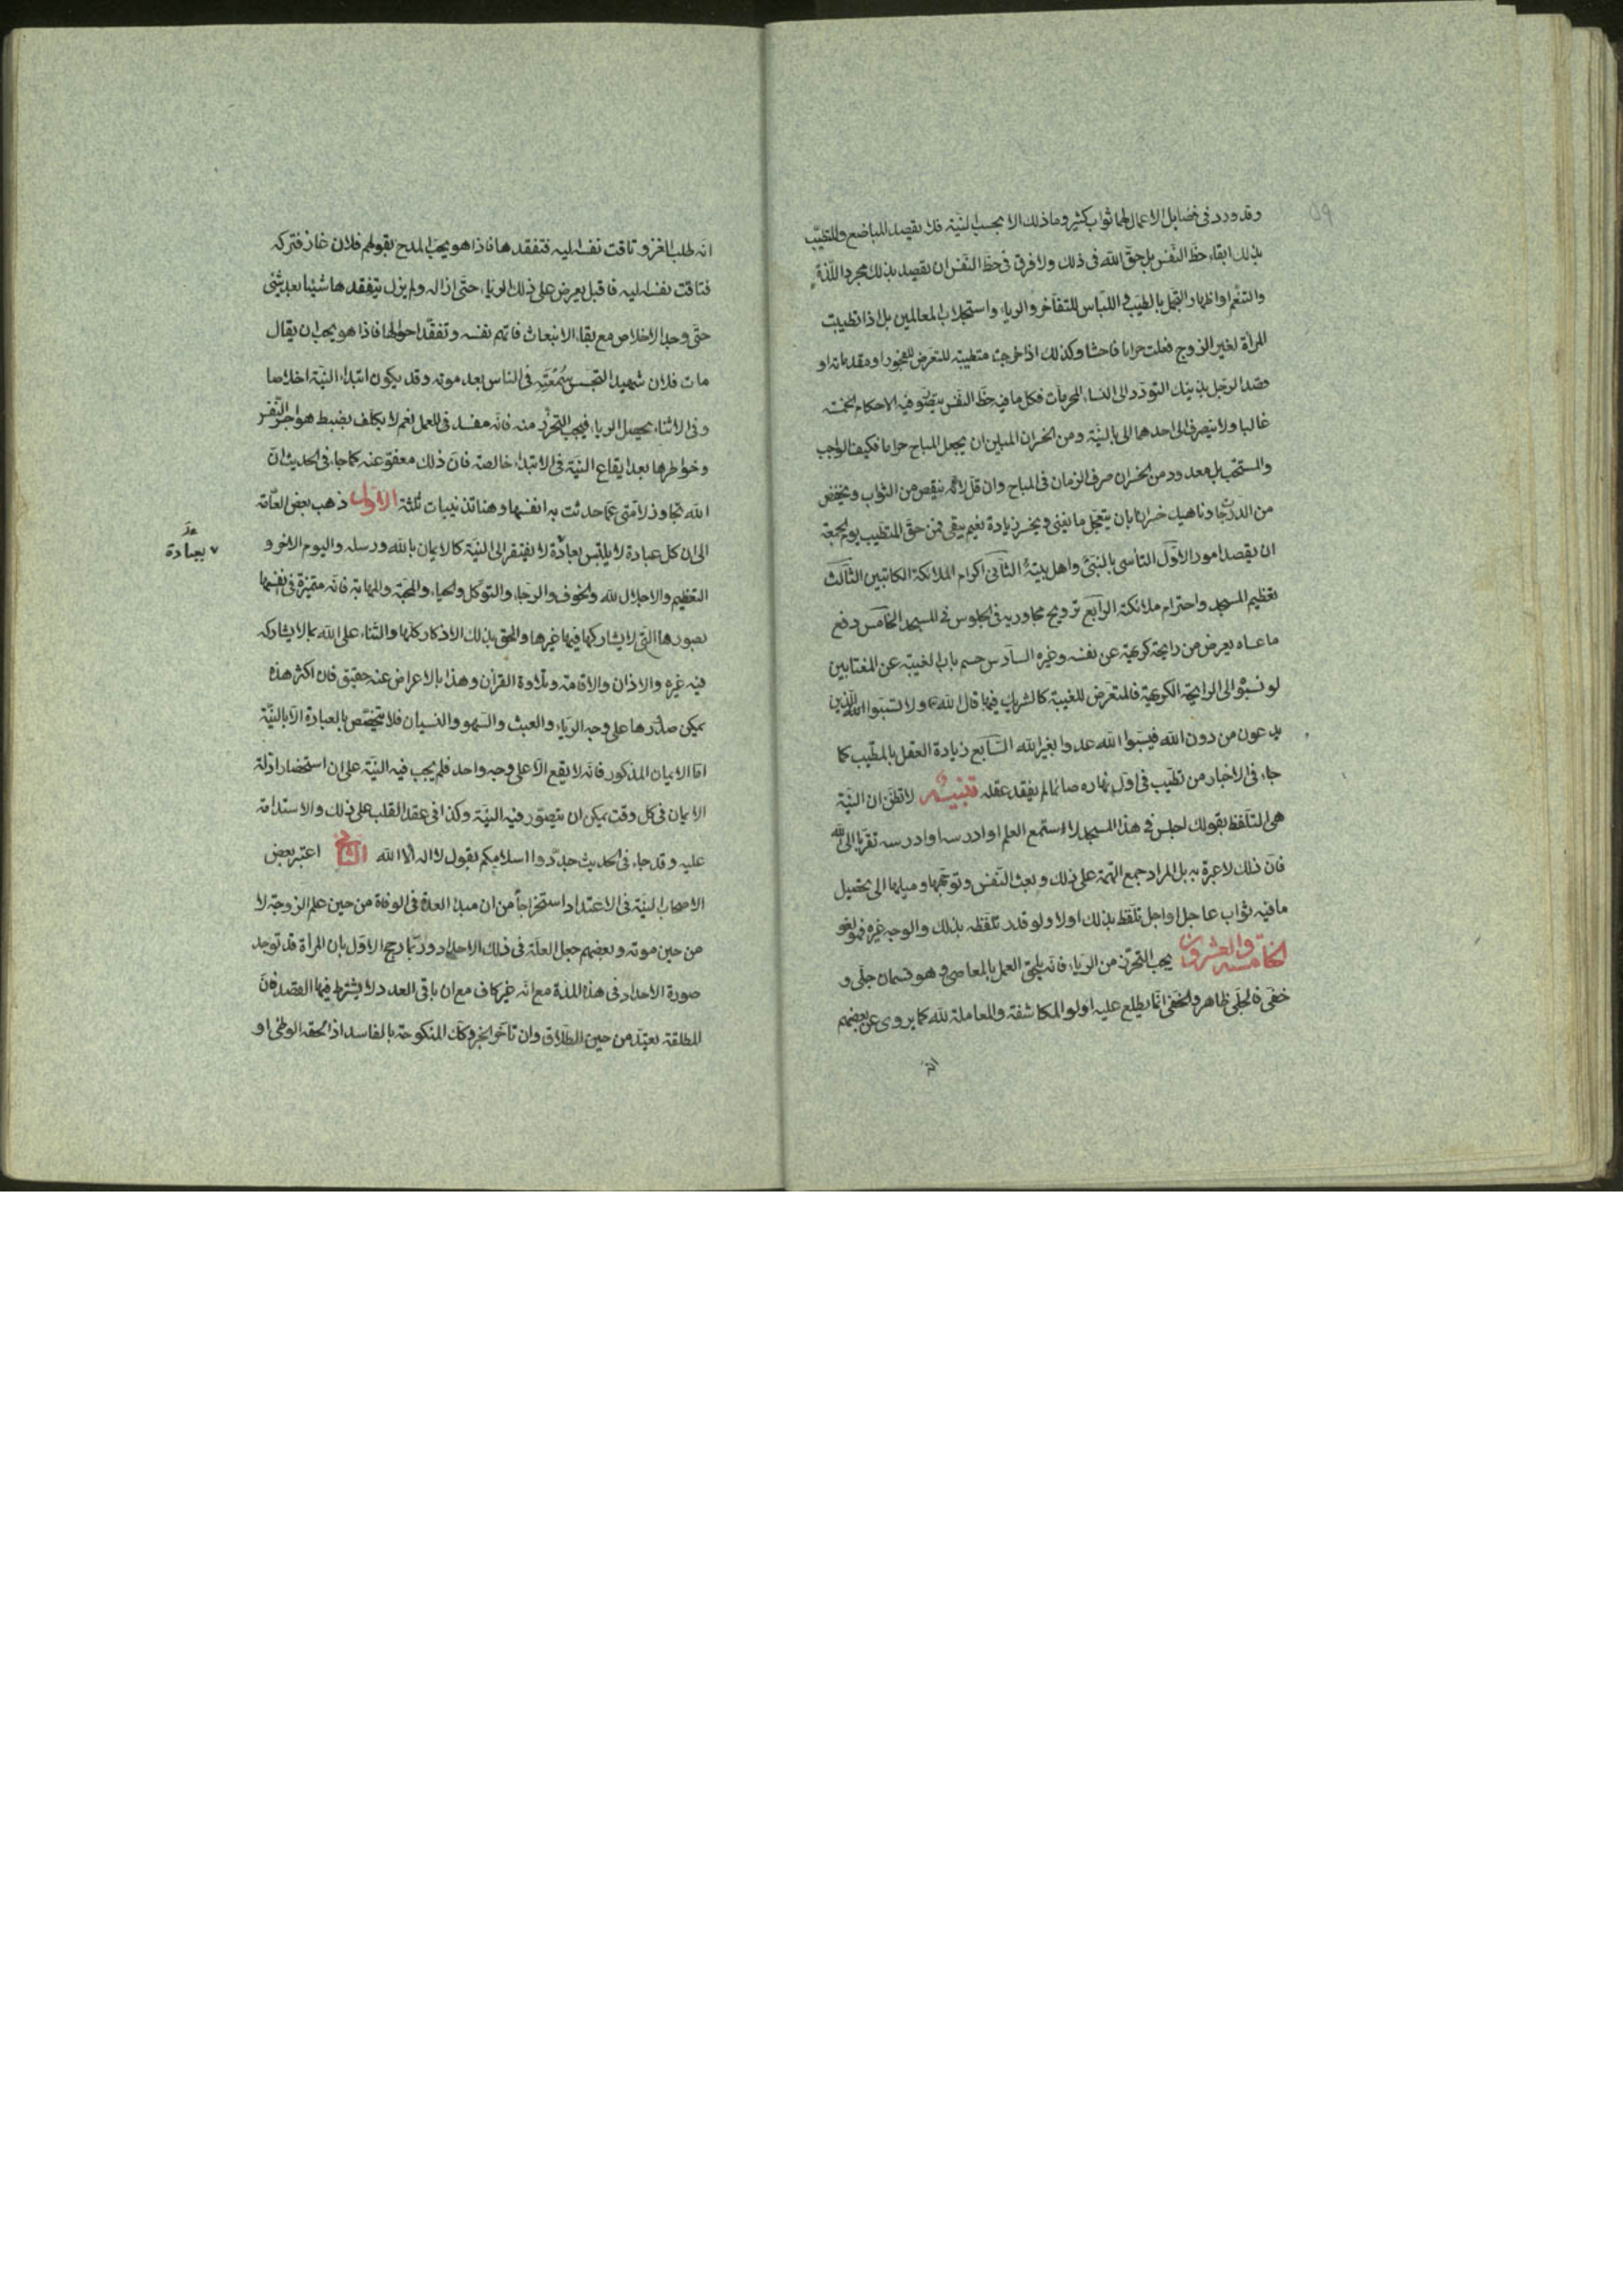 وقد ورد فى فضايل الاعمال لها ثواب كثير وما ذلك الا بحسب النيّة فلا يقصد المباضع والمتطيّب
بذلك ابقاء حظّ النّفس بل حقّ الله فى ذلك ولا فرق فى حظّ النّفس ان يقصد بذلك مجرد اللّذة
والتنعّم او اظهار التجمّل بالطيب فى اللّباس للتفاخر والرياء واستجلاب المعاملين بل اذا تطيبت
المرأة لغير الزوج فعلت حراما فاحشا وكذلك اذا خرجت متطيبة للتعرّض للفجور او مقدماته او
قصد الرجل بذينك التودّد الى النساء المحرمات فكل ما فيه حظّ النفس يتصوّر فيه الاحكام الخمسة
غالبا ولا ينصرف الى احدهما الى بالنيّة ومن الخسران المبين ان يجعل المباح حراما فكيف الواجب
والمستحبّ بل معدود من الخسران صرف الزمان فى المباح وان قلّ لانّه ينقص من الثواب ويخفض
من الدرجات وناهيك خسرانا بان يتعجّل ما يفنى ويخسر زيادة نعيم يبقى فمن حقّ المتطيب يوم الجمعة
ان يقصد امورا الاوّل التأسى بالنبىّ واهل بيته الثانى اكرام الملائكة الكاتبين الثالث
تعظيم المسجد واحترام ملائكته الرابع ترويح مجاوريه فى الجلوس فى المسجد الخامس دفع
ما عساه يعرض من رايحة كريهة عن نفسه وغيره السادس حسم باب الغيبة عن المغتابين
لو نسبوا الى الرايحة الكريهة فالمتعرّض للغيبة كالشريك فيها قال الله ولا تسبّوا الذين
يدعون من دون الله فيسبّوا الله عدوا بغير الله السّابع زيادة العقل بالطّيب كما
جاء فى الاخبار من تطيّب فى اوّل نهاره صائما لم يفقد عقله تنبيه لا تظنّ ان النيّة
هى التلفظ بقولك اجلس فى هذا المسجد لا استمع العلم او ادرسه او ادرسه تقرّبا الى الله
فانّ ذلك لا عبرة به بل المراد جمع الهمّة على ذلك وبعث النّفس وتوجّهها وميلها الى تحصيل
ما فيه ثواب عاجل او اجل تلفّظ بذلك اولا ولو قدّر تلفّظه بذلك والوجه غيره فهو لغو
الخامسة والعشرون يجب التحرّز من الرياء فانّه يلحق العمل بالمعاصى وهو قسمان جلّى و
خفّى فالجلّى ظاهر والخفى انّما يطلع عليه اولو المكاشفة والمعاملة لله كما يروى عن بعضهم
انّه
انّه طلب الغزو تاقت نفسه اليه فتفقدها فاذا هو يحبّ المدح بقولهم فلان غاز فتركه
فتاقت نفسه اليه فاقبل يعرض على ذلك الرياء حتّى ازاله ولم يزل يتفقدها شيئا بعد شئ
حتّى وجد الاخلاص مع بقاء الانبعاث فاتّهم نفسه وتفقّد احوالها فاذا هو يحب ان يقال
مات فلان شهيدا لتحسن سُمعته فى الناس بعد موته وقد يكون ابتداء النيّة اخلاصا
وفى الاثناء يحصل الرياء فيجب التحرّز منه فانّه مفسد فى العمل نعم لا يكلف بضبط هواجس النّفس
وخواطرها بعد ايقاع النيّة فى الابتداء خالصة فانّ ذلك معفوّ عنه كما جاء فى الحديث انّ
الله تجاوز لامّتى عمّا حدثت به انفسها وهنا تذنيبات ثلثة الاوّل ذهب بعض العامّة
الى ان كل عبادة لا يلتبس بعادة لا يفتقر الى النيّة كالايمان بالله ورسله واليوم الاخر و
بعبادة
التعظيم والاجلال لله والخوف والرجاء والتوكّل والحياء والمحبّة والمهابة فانّه متميّزة فى نفسها
بصورها الّتى لا يشاركها فيها غيرها والحق بذلك الاذكار كلّها والثناء على الله بما لا يشاركه
فيه غيره والاذان والاقامة وتلاوة القرآن وهذا بالاعراض عنه حقيق فان اكثر هذه
يمكن صدورها على وجه الرياء والعبث والسّهو والنسيان فلا يتخصّص بالعبادة الّا بالنيّة
امّا الايمان المذكور فانّه لا يقع الّا على وجه واحد فلم يجب فيه النيّة على ان استحضار ادلّة
الايمان فى كلّ وقت يمكن ان يتصوّر فيه النيّة وكذا فى عقد القلب على ذلك والاستدامة
عليه وقد جاء فى الحديث جدّدوا اسلامكم بقول لا اله الّا الله الثانى اعتبر بعض
الاصحاب النيّة فى الاعتداد استخراجاً من ان مبدأ العدة فى الوفاة من حين علم الزوجة لا
من حين موته وبعضهم جعل العلّة فى ذلك الاحداد وربّما رجح الاوّل بان المرأة قد توجد
صورة الاحداد فى هذه المدّة مع انّه غير كاف مع ان باقى العدد لا يشترط فيها القصد فانّ
المطلقة تعتدّ من حين الطلاق وان تأخّر الخبر وكك المنكوحة بالفاسد اذا لحقه الوطى او